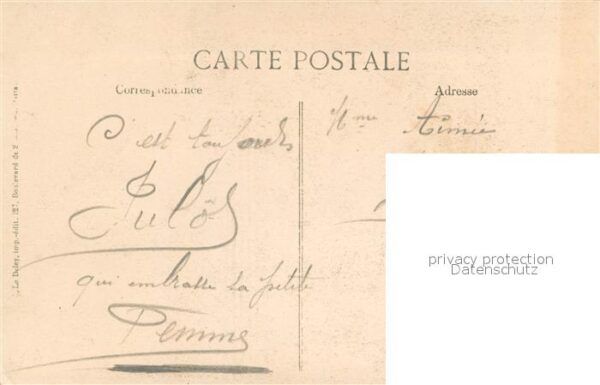 CARTE POSTALE
Correspondance
Adresse
C'est toujours
Julôt
qui embrasse sa petite
Femme
Mme Aimée
privacy protection
Datenschutz
Le Deley, imp.-édit., 127, Boulevard de